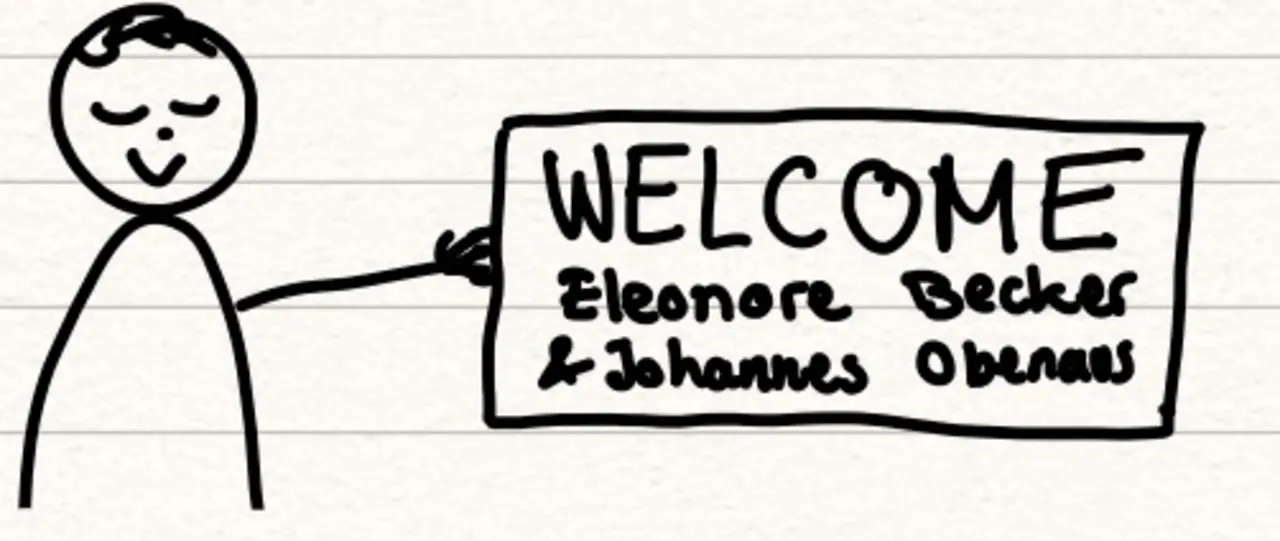 WELCOME
Eleonore Becker
& Johannes Obenaus